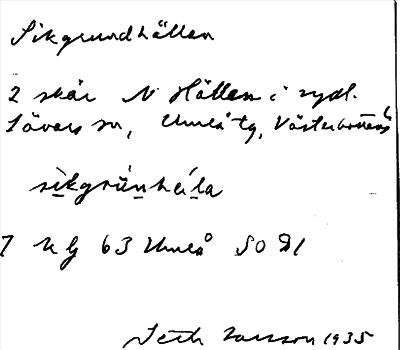 Sikgrundhällen
2 skär N Hällen i sydl.
Lövers sn, Umeå tg, Västerbottens l
sikgrunhäla
7 k bj 63 Umeå SO
Seth Larsson 1935